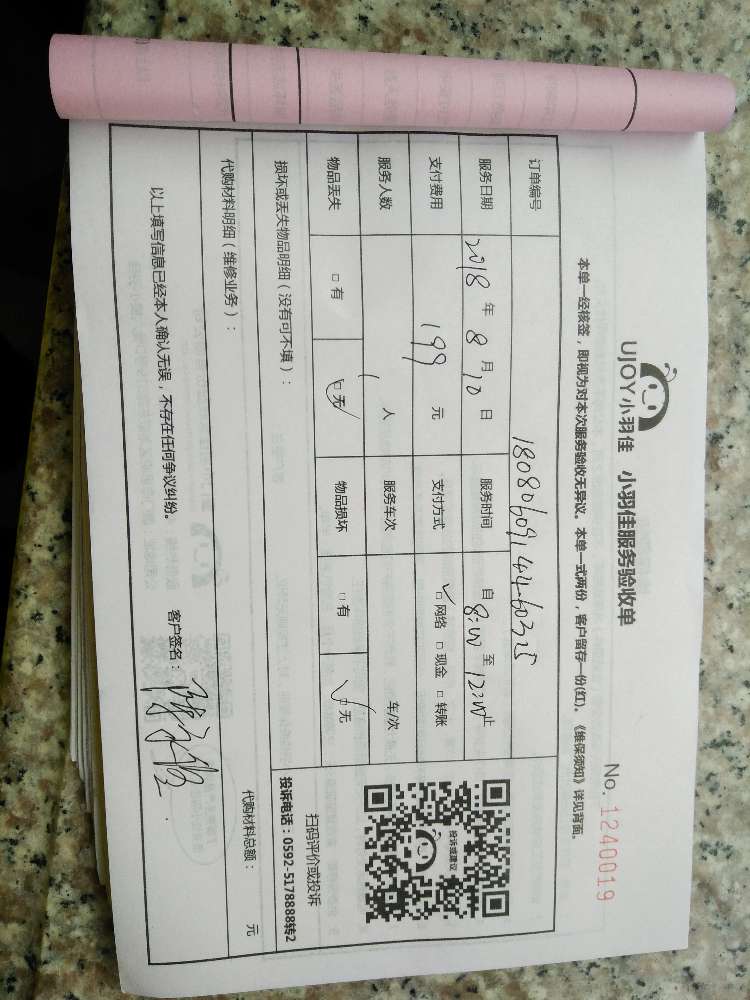 UJOY小羽佳 小羽佳服务验收单
No. 1240019
本单一经核签，即视为对本次服务验收无异议。本单一式两份，客户留存一份(红)。《维保须知》详见背面。
订单编号 180806091444-60325
服务日期 2018 年 8 月 10 日 服务时间 自 8:00 至 12:00 止
支付费用 199 元 支付方式 ✓□网络 □现金 □转账
服务人数 1 人 服务车次 车/次
物品丢失 □有 ☑无 物品损坏 □有 ☑无
投诉或建议
扫码评价或投诉
投诉电话：0592-5178888转2
损坏或丢失物品明细（没有可不填）：
代购材料明细（维修业务）：
代购材料总额： 元
以上填写信息已经本人确认无误，不存在任何争议纠纷。 客户签名：